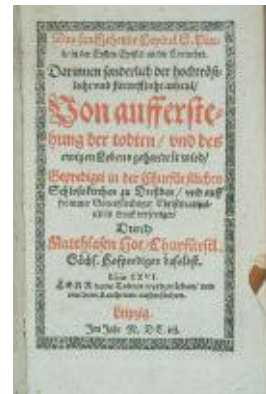 Das funffzehende Capitel S. Pau-
li in der Ersten Epistel an die Corinther.
Darinnen sonderlich der hochtröst-
liche und
Von aufferste-
hung der todten / und des
ewigen Lebens gehandelt wird /
Geprediget in der Churfürstlichen
Schlosskirchen zu Dreßden / und auff
frommer
in Druck verfertiget /
Durch
Matthiasen Hoe / Churfürstl.
Sächs. Hofprediger daselbst.
HERR deine Todten werden leben / und
Leipzig.
Im Jahr M. DC.